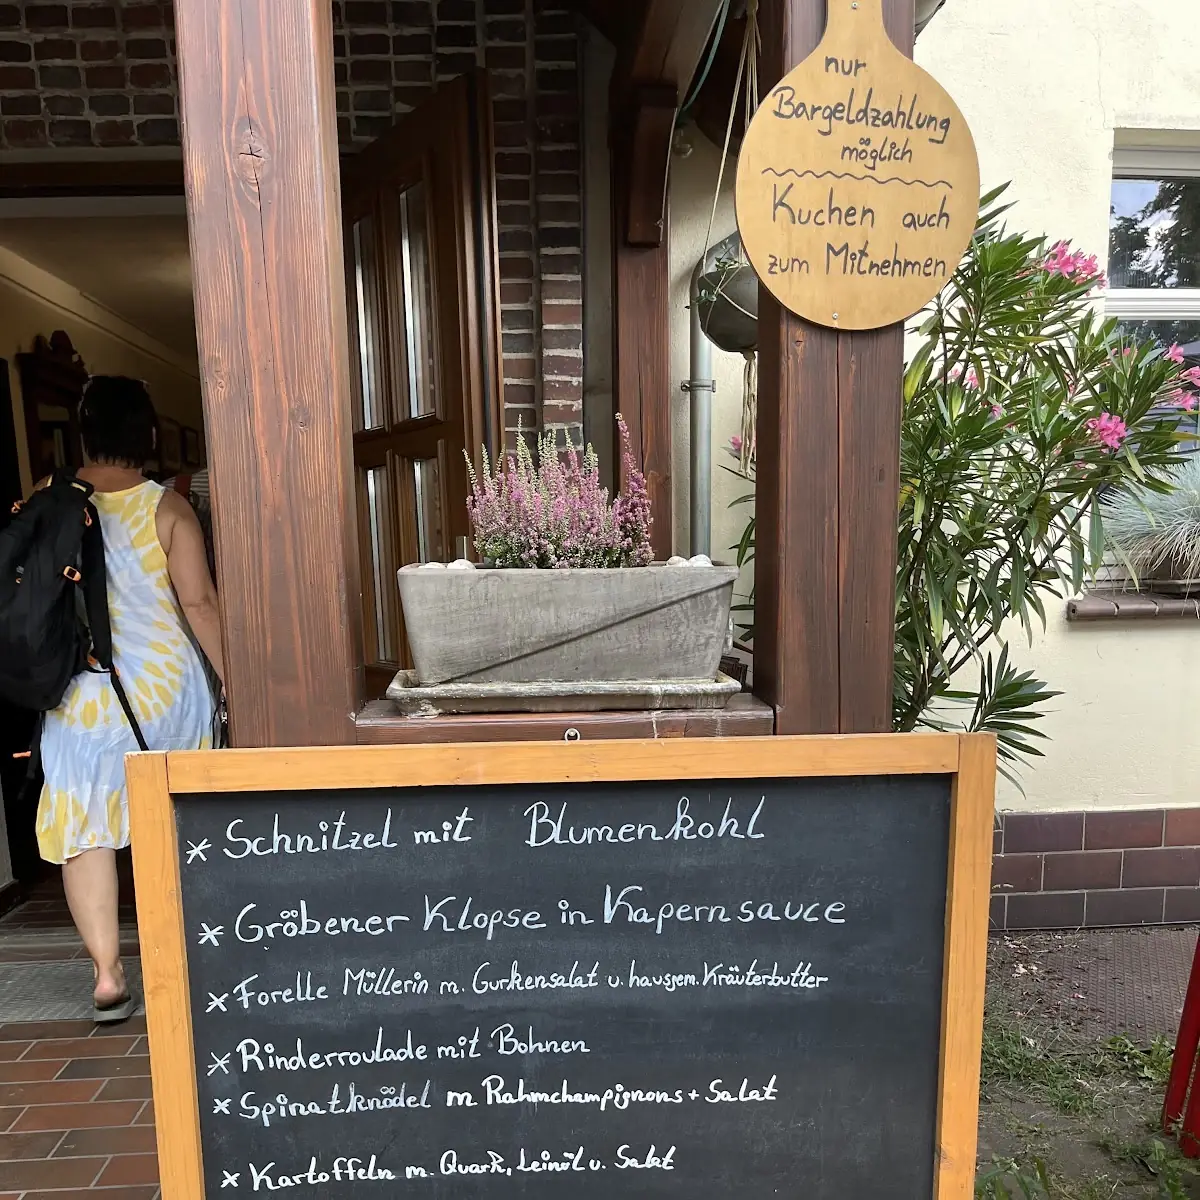 nur
Bargeldzahlung
möglich
Kuchen auch
zum Mitnehmen
* Schnitzel mit Blumenkohl
* Gröbener Klopse in Kapernsauce
* Forelle Müllerin m. Gurkensalat u. hausgem. Kräuterbutter
* Rinderroulade mit Bohnen
* Spinatknödel m Rahmchampignons + Salat
* Kartoffeln m. Quark, Leinöl u. Salat